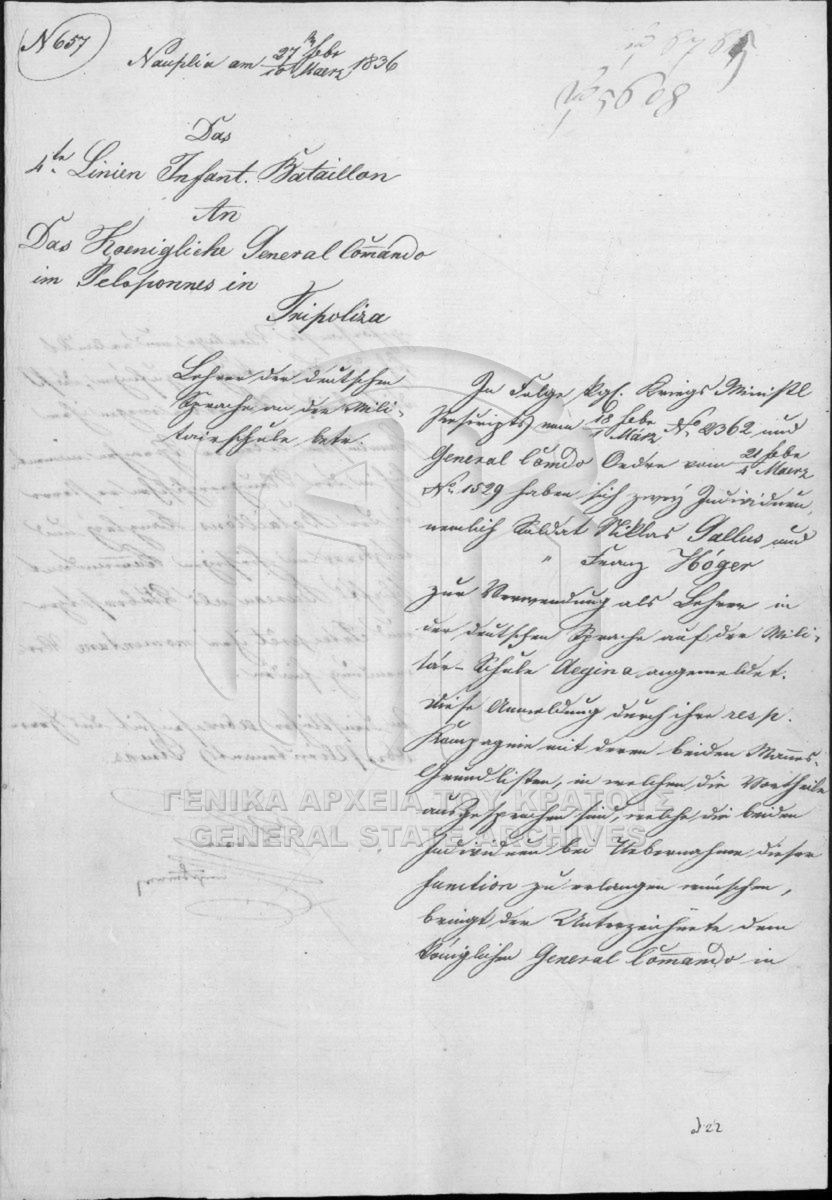 N 657
Nauplia am 27 febr / 10 Maerz 1836
5608
Das
4te Linien Infant. Bataillon
An
Das Koenigliche General Commando
im Peloponnes in
Tripoliza
Lehrer der deutschen
Sprache an der Mili-
tairschule betr.
In Folge kgh. Kriegs Ministl
Rescripts vom 18 febr / 1 März No 2362 und
General Comdo Ordre vom 21 febr / 4 Maerz
No 1529 haben sich zwey Individuen,
nemlich Soldat Niklas Gallus und
" Franz Höger
zur Verwendung als Lehrer in
der deutschen Sprache auf der Mili-
tär-Schule Aegina angemeldet.
Diese Anmeldung durch ihre resp.
Kompagnie mit deren beiden Manns-
Grundlisten, in welchen die Vortheile
ausgesprochen sind, welche die beiden
Individuen bei Uebernahme dieser
function zu erlangen wünschen,
bringt der Unterzeichnete dem
Königlichen General Commando in
ΓΕΝΙΚΑ ΑΡΧΕΙΑ ΤΟΥ ΚΡΑΤΟΥΣ
GENERAL STATE ARCHIVES